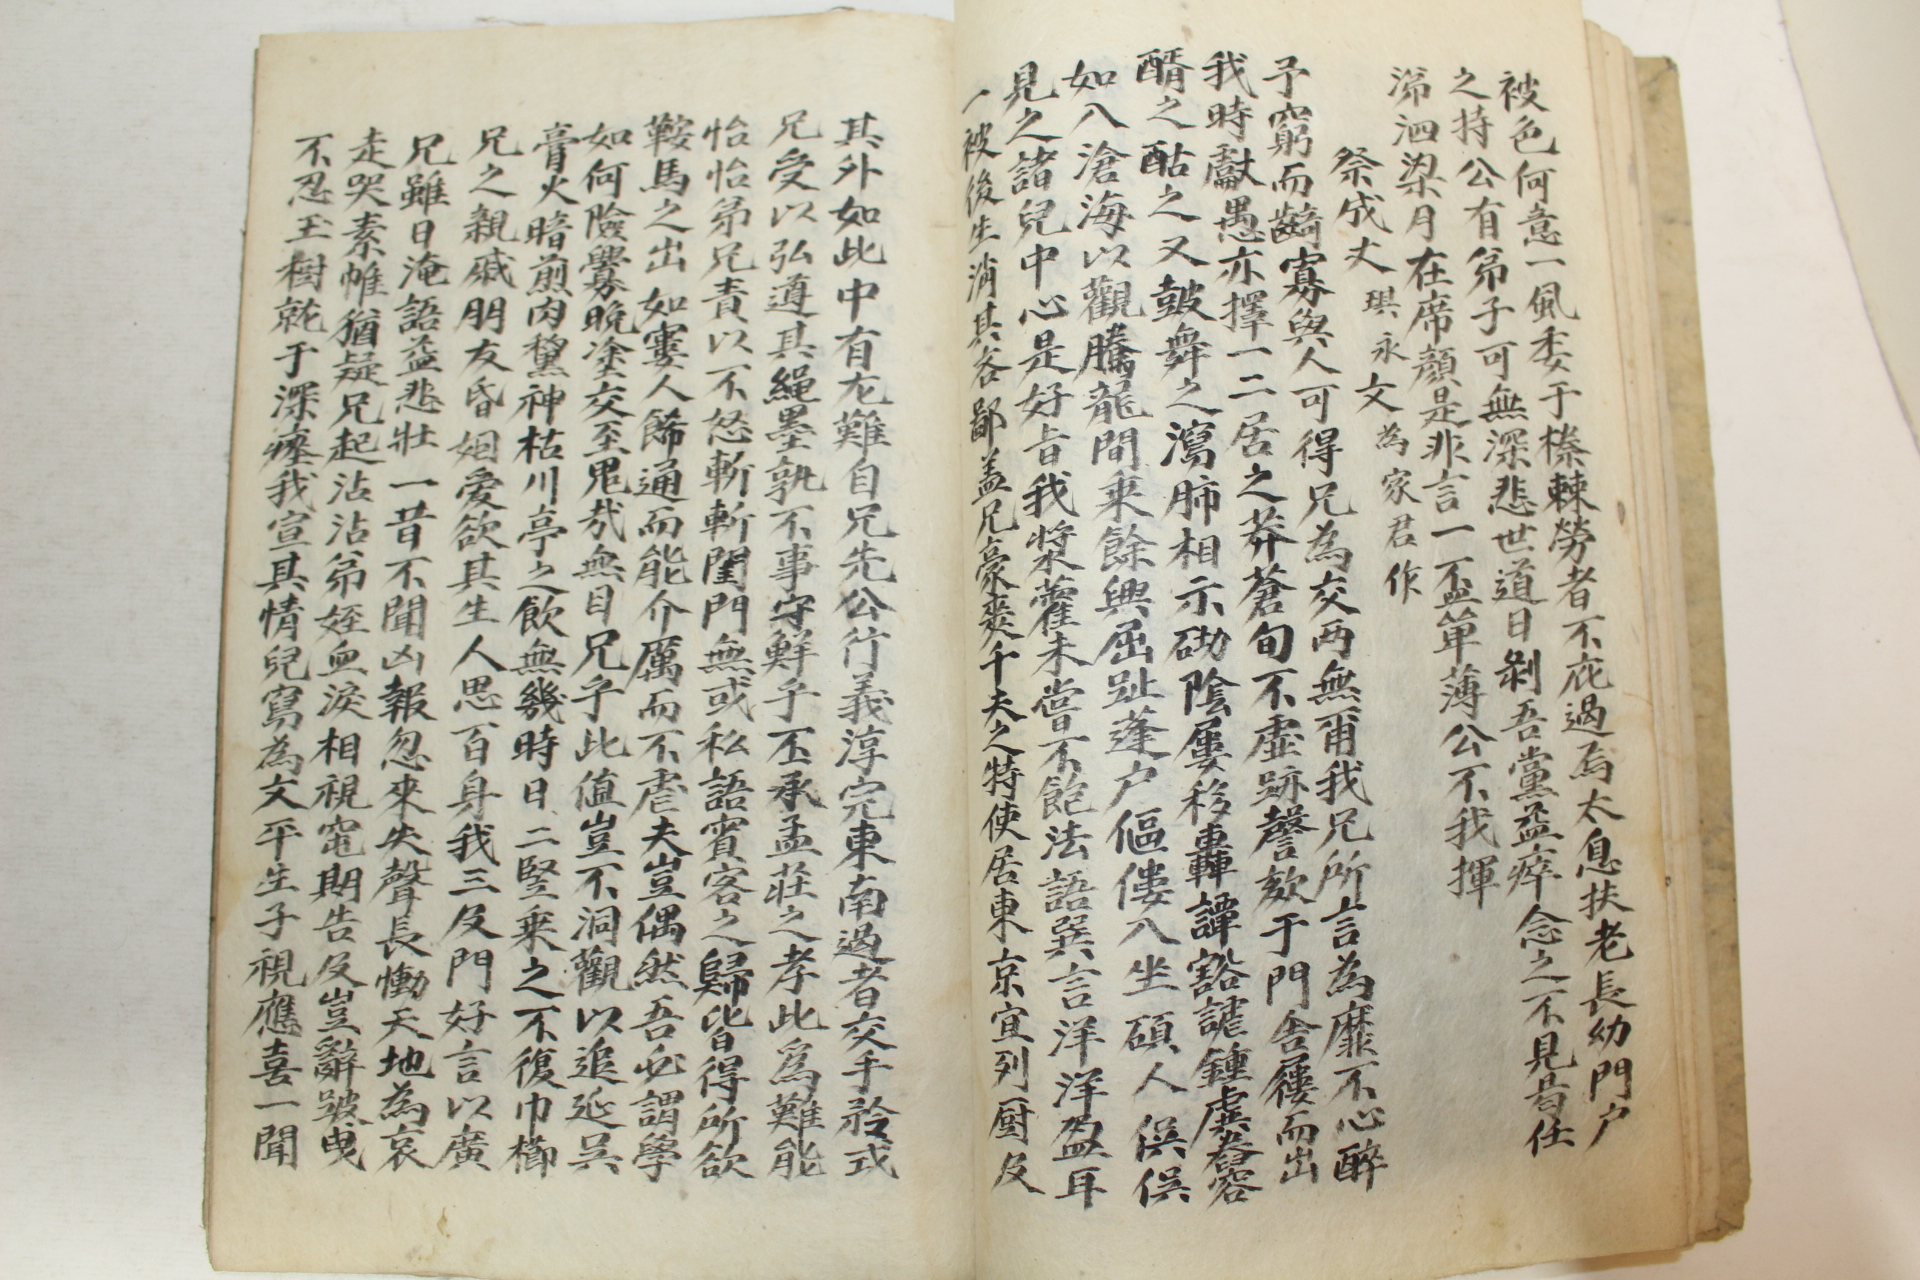 被色何意一風委于榛棘勞者不庇過為太息扶老長幼門户
之持公有弟子可無深悲世道日剝吾黨益瘁念之不見曷任
涕泗梁月在席顔是非言一盃單薄公不我揮
祭成丈珙永文為家君作
予窮而齮寡與人可得兄為交两無甭我兄所言為靡不心醉
我時獻愚亦擇一二居之莽蒼旬不虛跡謦欬于門舎屨而出
醑之酤之又鼓舞之瀉肺相示砌陰屢移轟譚豁謔鍾虡
如入滄海以觀騰龍間乗餘興屈趾蓬户傴僂入坐碩人俣俣
見之諸兒中心是好旨我漿藿未嘗不飽法語巽言洋洋盈耳
一被後生消其吝鄙盖兄豪爽千夫之特使居東京宜列厨及
其外如此中有尤難自兄先公行義淳完東南過者交手矜式
兄受以弘遵其繩墨孰不事守鮮乎丕承孟莊之孝此為難能
怡怡弟兄責以不怒斬斬閨門無或私語賓客之歸皆得所欲
鞍馬之出如寠人餙通而能介厲而不虐夫豈偶然吾必謂學
如何險釁晩塗交至鬼哉無目兄乎此值豈不洞觀以追延吴
膏火暗煎肉黧神枯川亭之飲無幾時日二竪乗之不復巾櫛
兄之親戚朋友昏姻愛欲其生人思百身我三及門好言以廣
兄雖日淹語益悲壯一昔不聞凶報忽來失聲長慟天地為哀
走哭素帷猶疑兄起沾沾弟姪血淚相視窀期告及豈辭號曳
不忍玉樹就于深瘞我宣其情兒寫為文平生子視應喜一聞